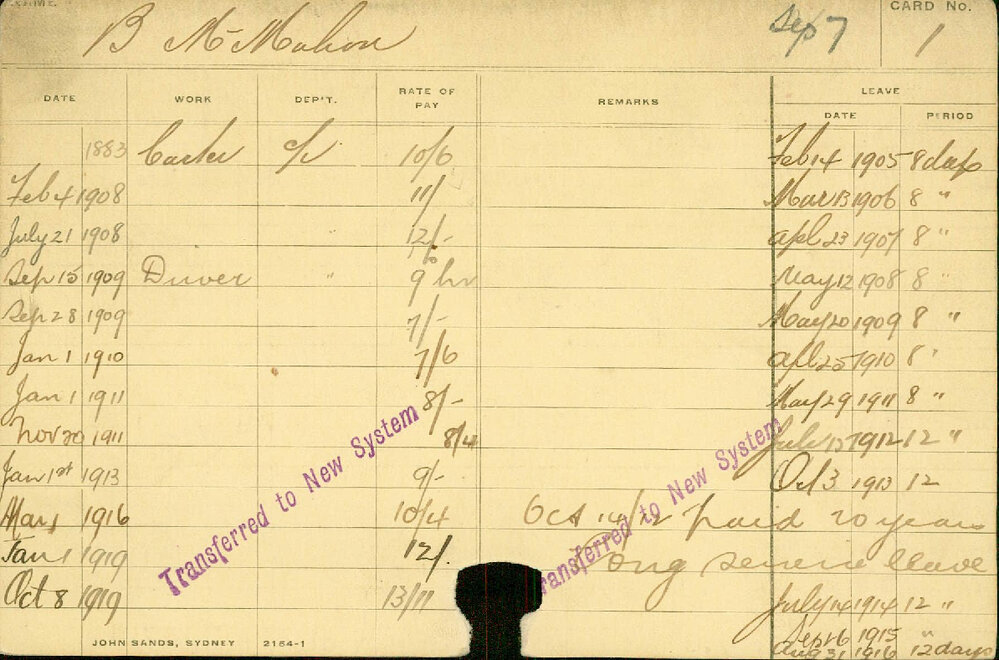 B McMahon Sep 7 CARD No. 1
DATE WORK DEP'T. RATE OF PAY REMARKS LEAVE
DATE PERIOD
1883 Carter 10/6 Feb 14 1905 8 days
Feb 4 1908 11/ Mar 13 1906 8 "
July 21 1908 12/- Apl 23 1907 8 "
Sep 15 1909 Driver " 9 hr May 12 1908 8 "
Sep 28 1909 7/- May 20 1909 8 "
Jan 1 1910 7/6 Apl 25 1910 8 "
Jan 1 1911 8/- May 29 1911 8 "
Nov 20 1911 8/4 July 1912 12 "
Jan 1st 1913 9/- Oct 3 1913 12
Mar 1 1916 10/4 Oct 14/12 paid 20 years
Jan 1 1919 12/. long service leave
Oct 8 1919 13/11 July 14 1914 12 "
Sept 6 1915 "
Aug 31 1916 12 days
Transferred to New System
Transferred to New System
JOHN SANDS, SYDNEY 2154-1